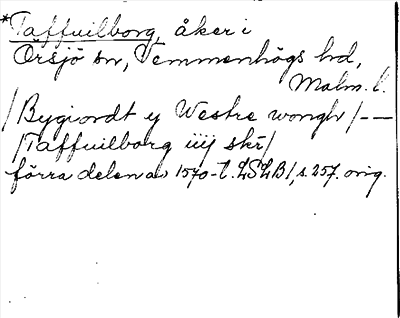 *Taffuilborg, åker i
Örsjö sn, Vemmenhögs hd,
Malm. l.
/Bygiordt y Westre wongh/ — —
/Taffuilborg iiij skr/
förra delen av 1570-t. LSLB1, s. 257. orig.